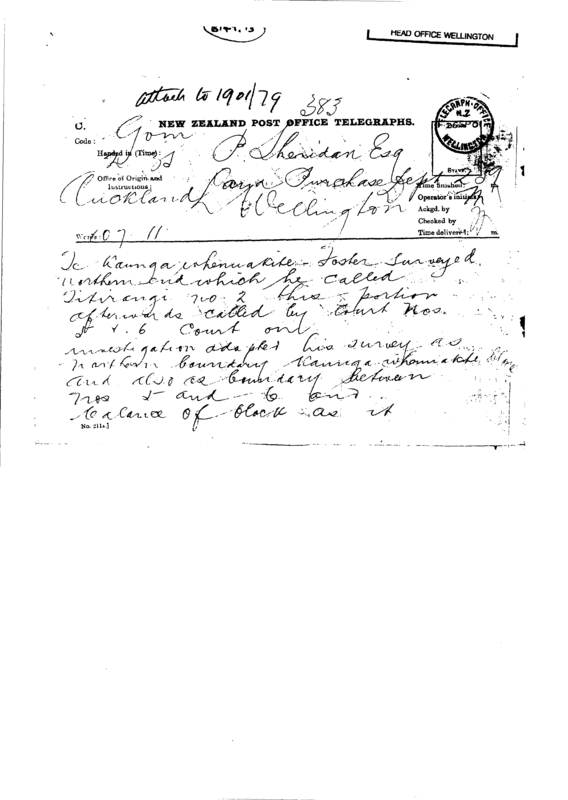 HEAD OFFICE WELLINGTON
attach to 1901/79
383
NEW ZEALAND POST OFFICE TELEGRAPHS.
TELEGRAPH-OFFICE
N.Z
WELLINGTON
Code:
Govn
Handed in (Time):
P. Sheridan Esq
STAMP
Office of Origin and
Instructions:
Auckland
Land Purchase Dept
Wellington
Time finished:
Operator's initials
Ackgd. by
Checked by
Time delivered: m.
Words: 07 11
Te Kaunga whenuakite - Foster surveyed
northern end which he called
Titirangi no. 2 this portion
afterwards called by Court Nos.
5 & 6 Court on
investigation adopted his survey as
northern boundary Kaunga whenuakite
and also as boundary between
nos 5 and 6 and
balance of block as it
No. 211a.]